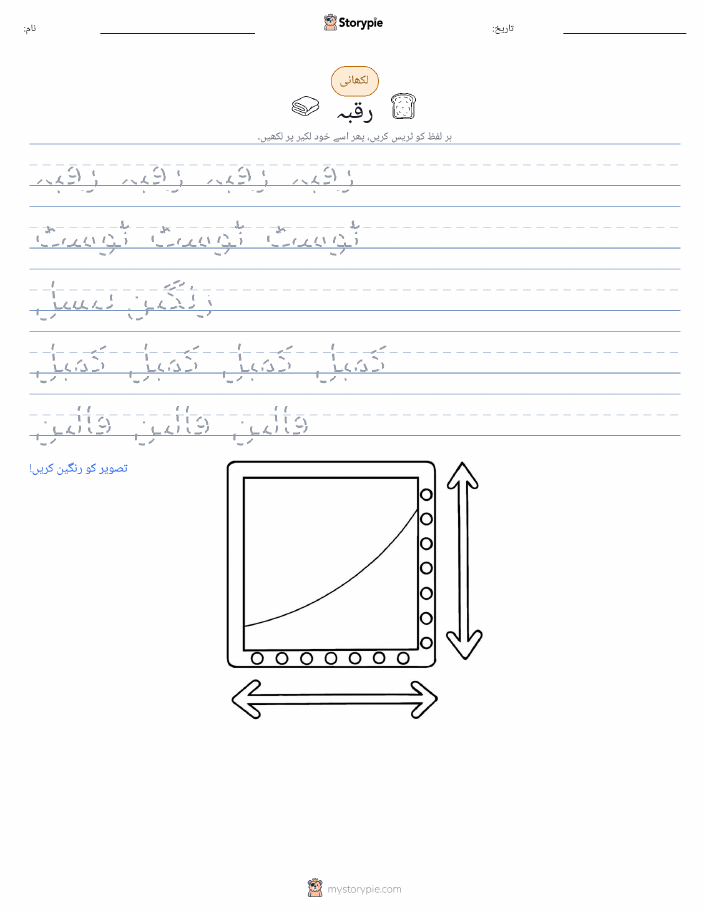 نام:
Storypie
تاریخ:
لکھائی
رقبہ
ہر لفظ کو ٹریس کریں، پھر اسے خود لکیر پر لکھیں۔
رقبہ رقبہ رقبہ رقبہ
ٹوسٹ ٹوسٹ ٹوسٹ
رنگین پنسل
کمبل کمبل کمبل کمبل
قالین قالین قالین
تصویر کو رنگین کریں!
mystorypie.com